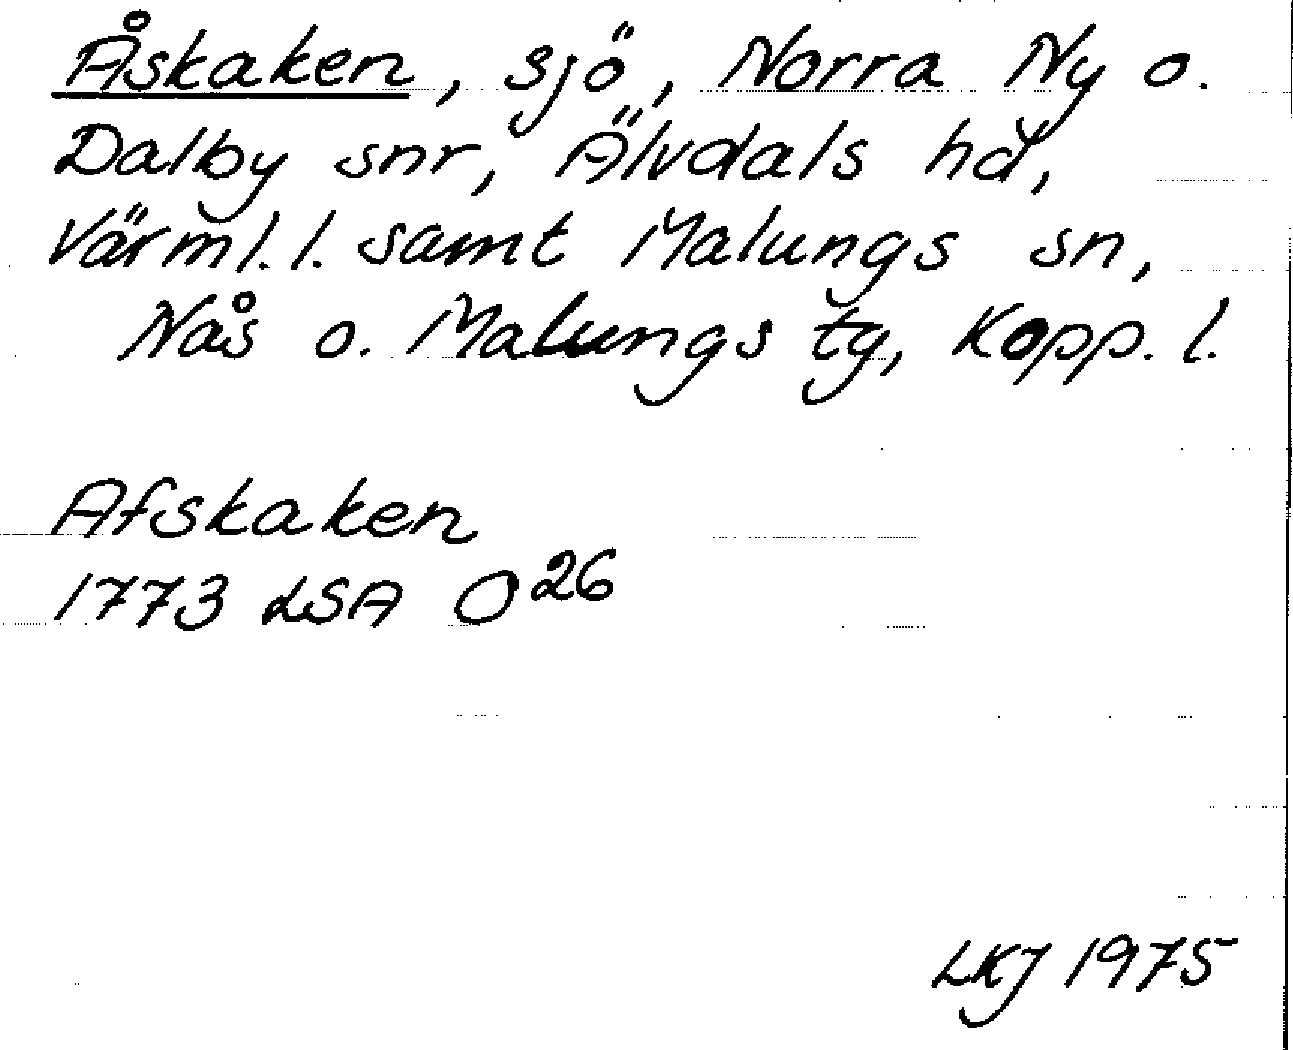 Åskaken, sjö, Norra Ny o.
Dalby snr, Älvdals hd,
Värml. l. samt Malungs sn,
Nås o. Malungs tg, Kopp. l.
Afskaken
1773 LSA O26
LKJ 1975